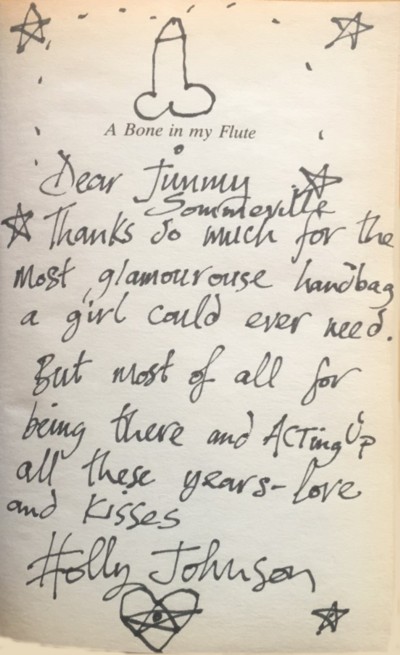 A Bone in my Flute
Dear Jimmy
Sommerville
Thanks so much for the
most glamourouse handbag
a girl could ever need.
But most of all for
being there and ACTing Up
all these years - love
and kisses
Holly Johnson